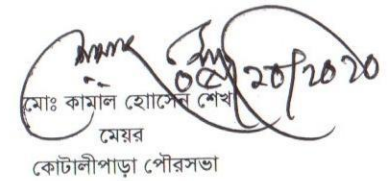 ০৫/১০/২০২০
মোঃ কামাল হোসেন শেখ
মেয়র
কোটালীপাড়া পৌরসভা